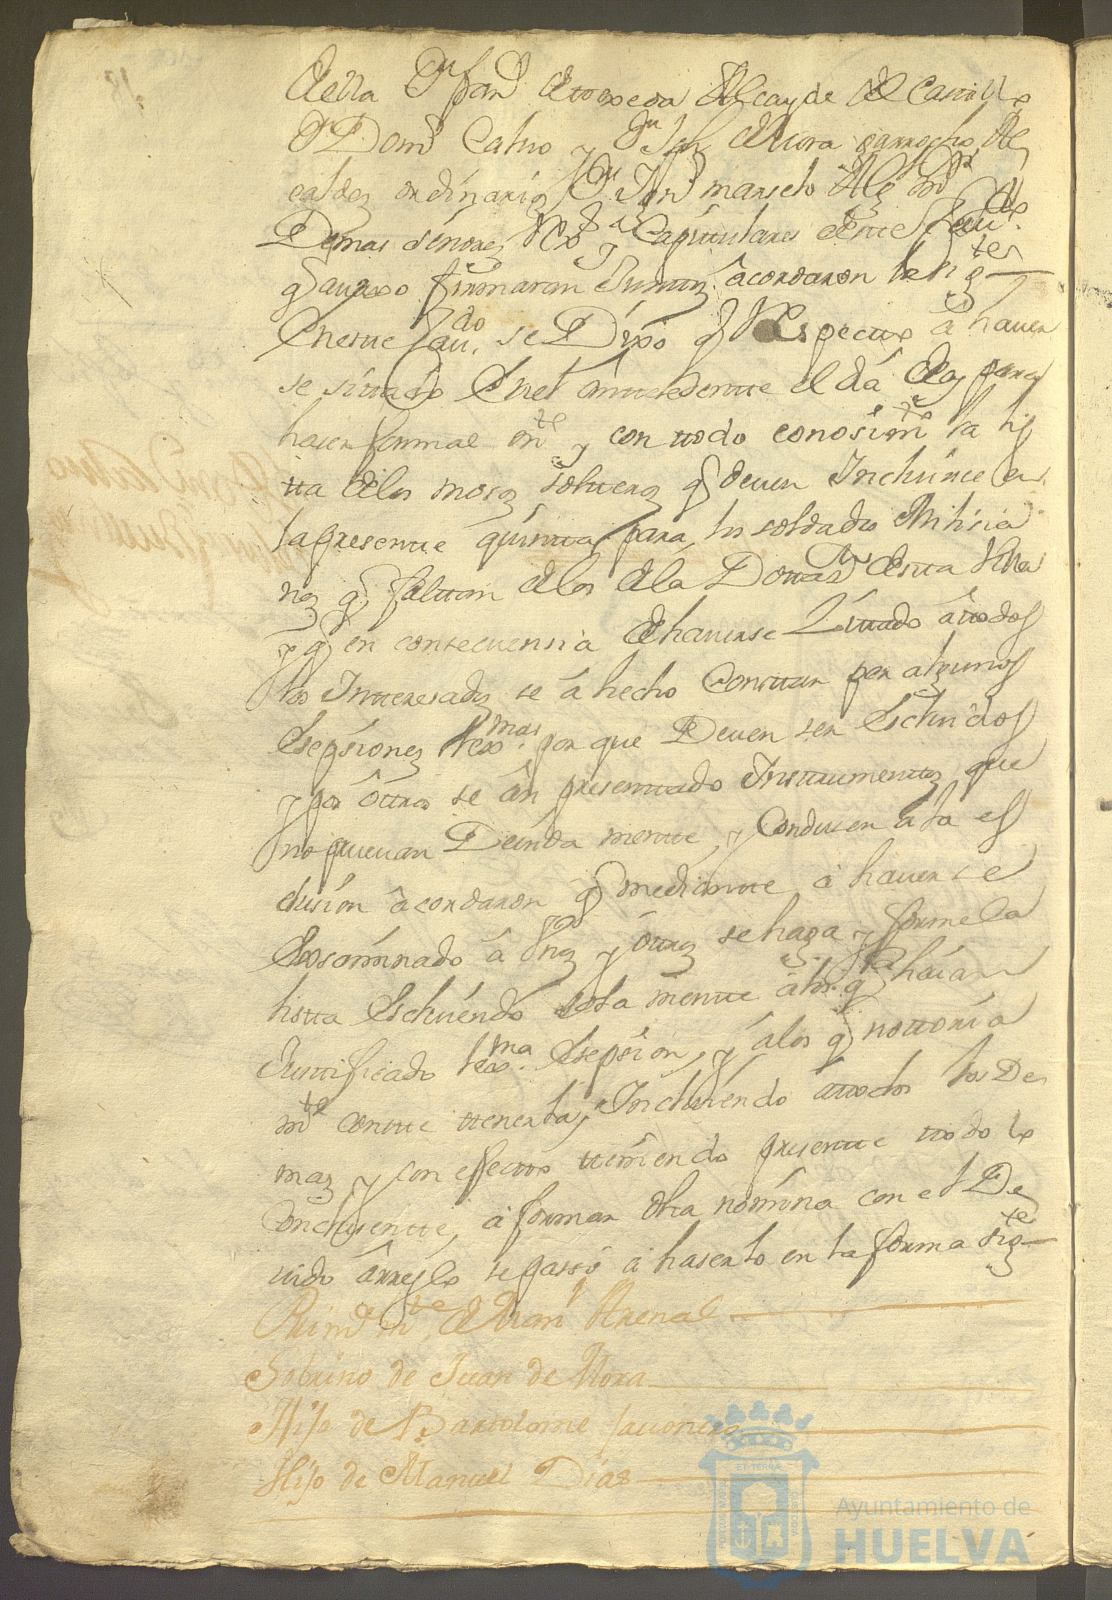 della Dn fando de toxeda Alcayde del Castillo
Dn Domo Calvo y Dn Jph de Mora garrocho Al
caldes ordinarios Dn Jun marselo Alg. mor
Demas señores Rexres y Capitulares deste Cavdo
q avaxo firmaran Juntos acordaron lo sigte
En este Cavdo se Dixo q Respecto a haver
se sitado En el antesedente el dia de oy para
hacer formal mte y con todo conosimto la lis
ta de los mosos solteros q deven Incluirse en
la presente quinta para los soldados Milisia
nos q faltan de los de la Dottasn desta Villa
y q en consecuensia de haverse Zitado a todos
los Interesados se a hecho Constar por algunos
Esepsiones lexmas por que Deven ser Escluidos
y por otros se an presentado Instrumentos que
no pruevan Devida mente, y Conducen a la es
clusion acordaron q mediante a haverse
Exsaminado a Unos y otros se haga y forme la
lista Escluiendo solo mente a los q haian
Justificado lexma Esepsion, y a los q nottoria
mte conste tenerla, Incluiendo a todos los De
mas y con efecto teniendo presente todo lo
Condusente, a formar dha nomina con el De
vido arreglo se passo a haserlo en la forma sigte
Primeramte de Juan Arenal
Sobrino de Juan de Mora
Hijo de Bartolome
Hijo de Manuel Dias
ET TERRA
Ayuntamiento de
HUELVA